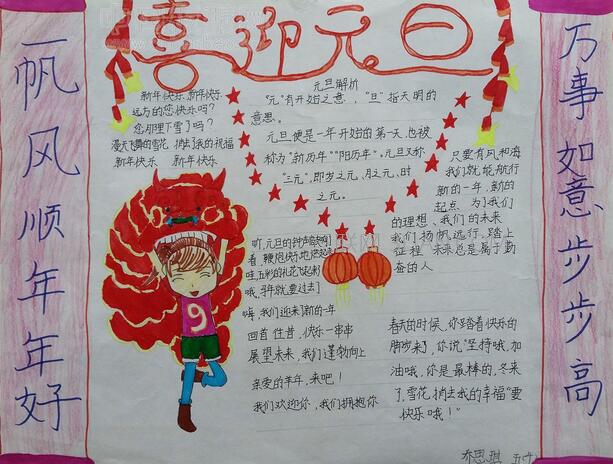 喜迎元旦
一帆风顺年年好
万事如意步步高
新年快乐、新年快乐
远方的您快乐吗?
您那里下雪了吗?
漫天飞舞的雪花,捎去我的祝福
新年快乐 新年快乐
元旦解析
"元"有开始之意,"旦"指天明的
意思。
元旦便是一年开始的第一天,也被
称为"新历年""阳历年"。元旦又称
"三元",即岁之元、月之元、时
之元。
只要有风和海
我们就能航行
新的一年,新的
起点,为了我们
的理想、我们的未来
我们扬帆远行,踏上
征程,未来总是属于勤
奋的人
听,元旦的钟声敲响了
看,鞭炮快乐地燃起来
哇,五彩的礼花飞起来
哦,羊年就要过去了
嗨,我们迎来了新的一年
回首往昔,快乐一串串
展望未来,我们蓬勃向上
亲爱的羊年,来吧!
我们欢迎你,我们拥抱你
春天的时候,你踏着快乐的
脚步来了,你说"坚持哦,加
油哦,你是最棒的,冬来
了,雪花,捎去我的幸福"要
快乐哦!"
9
乔思琪